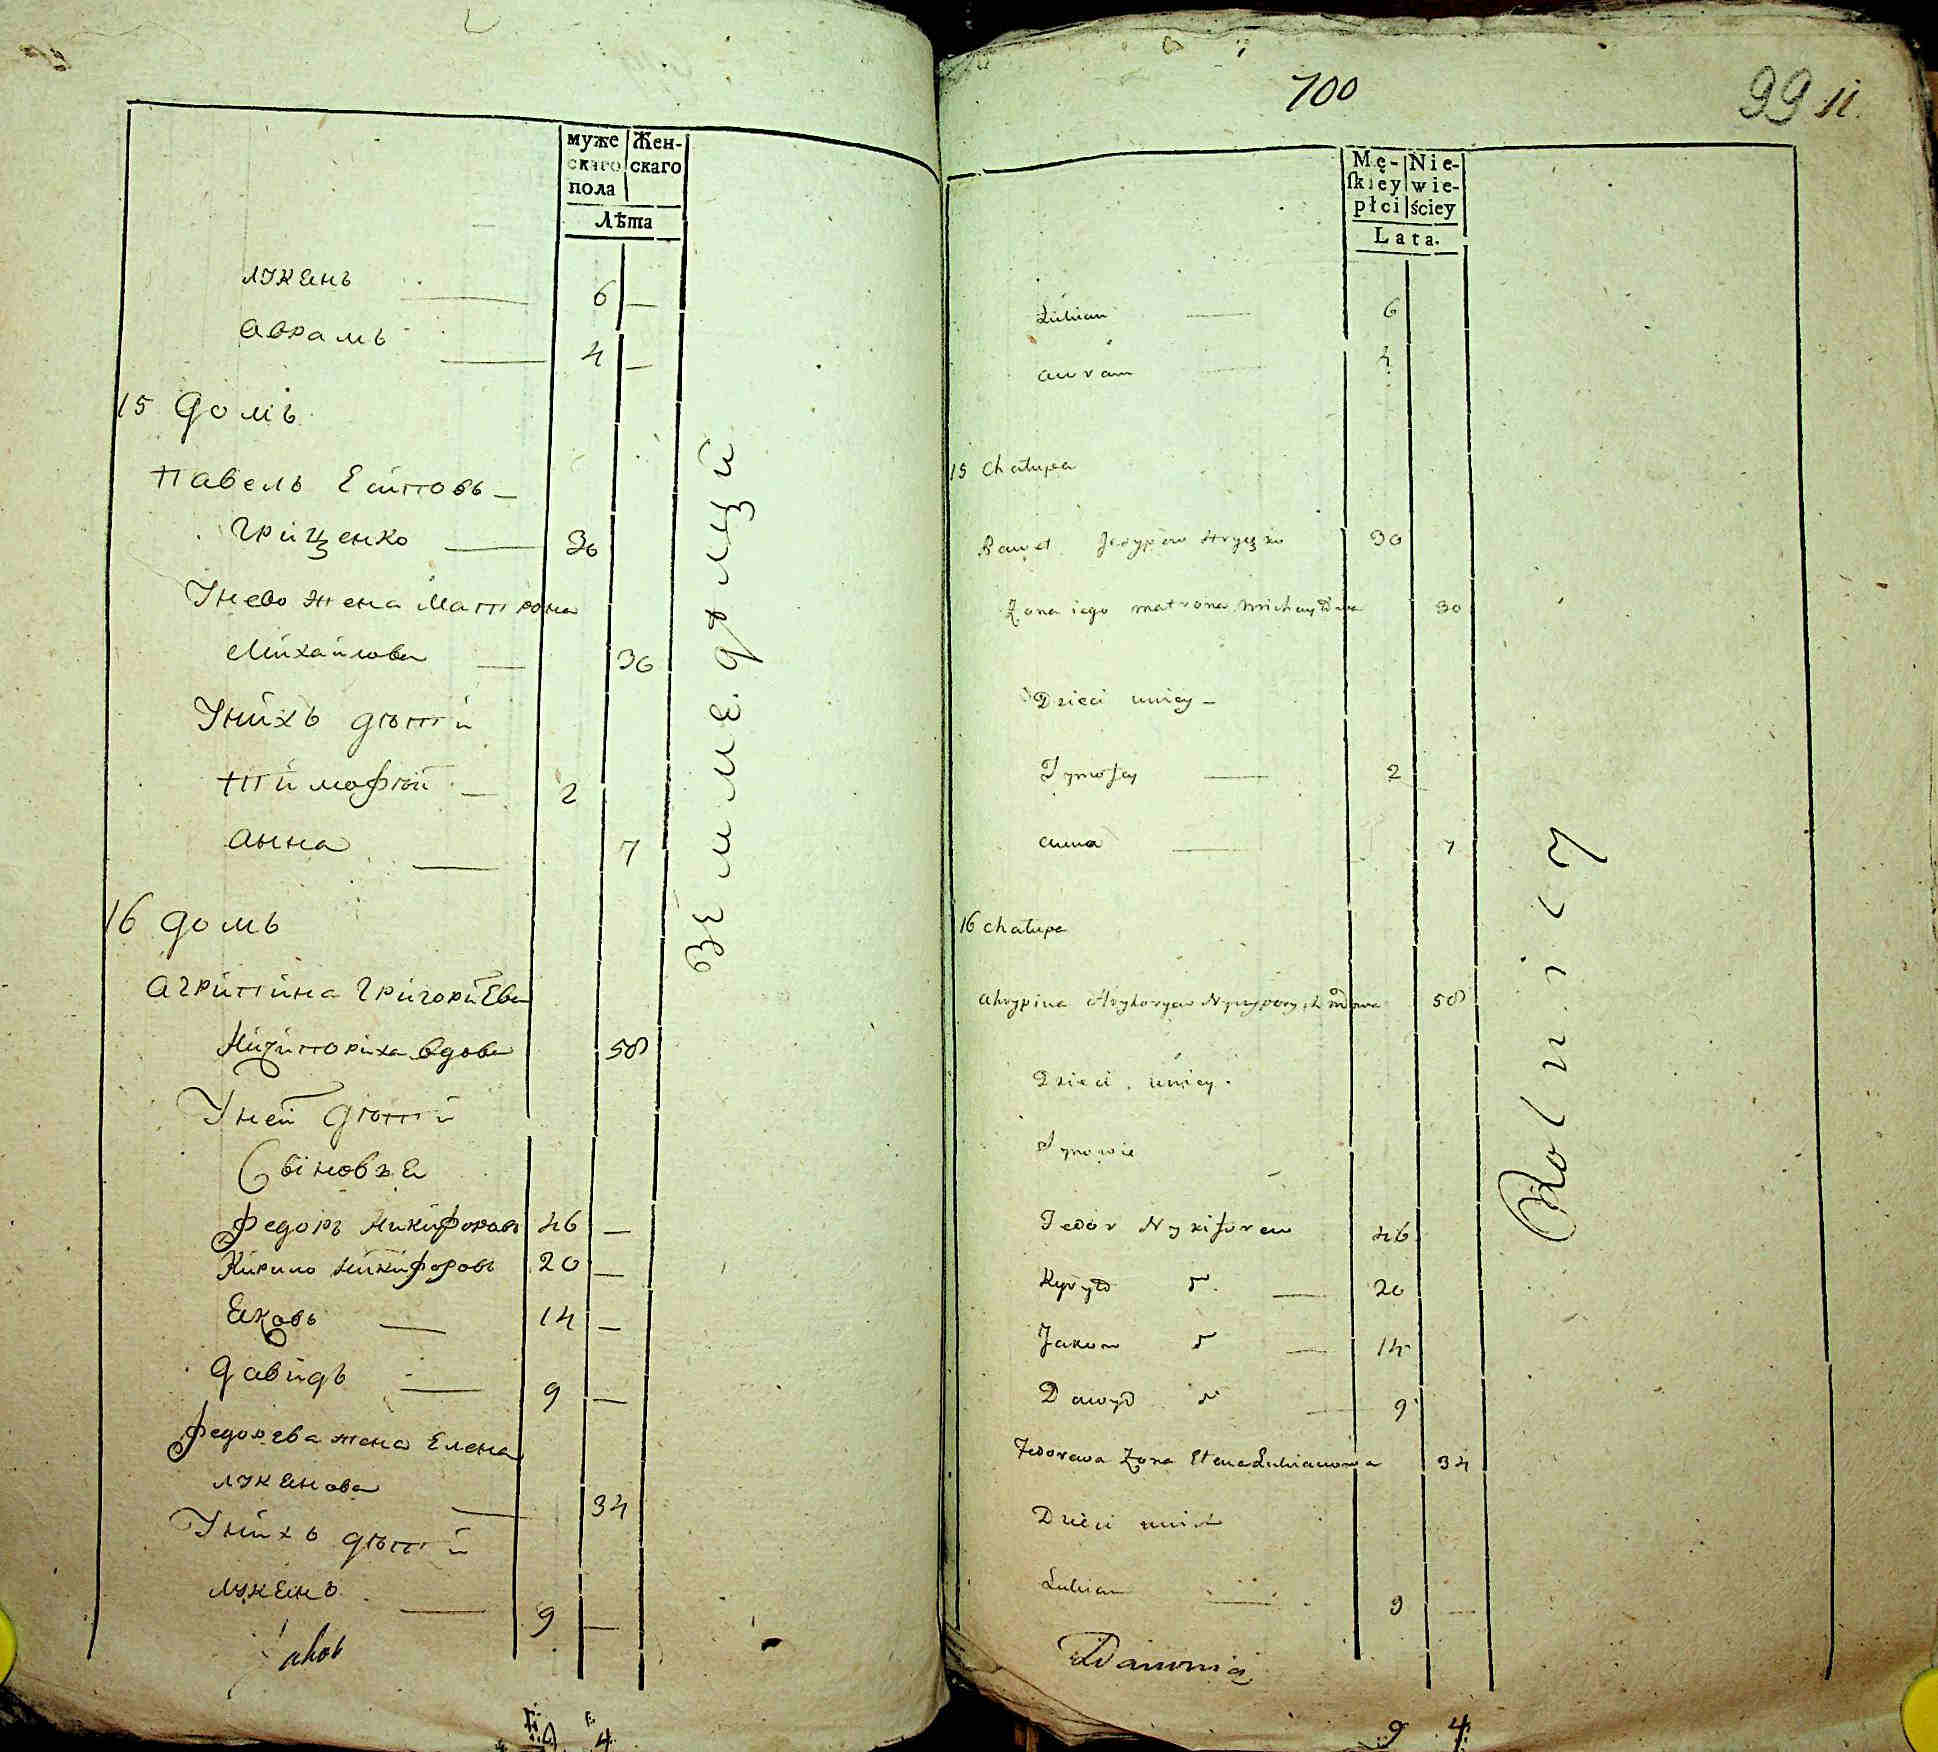 муже скаго пола
Женскаго
Лѣта
лукянъ 6 —
аврамъ 4 —
15 домъ
павелъ Есиповъ —
грищенко 30
Унево жена Матрона
Михаилова 30
Унихъ дѣти
тимофѣй 2
анна 7
16 домъ
агрипина григориева
вдова 58
Уней дѣти
Сыновья
федоръ никифоровъ 46 —
Кирило никифоровъ 20 —
Яковъ 14 —
давидъ 9 —
федорева жена Елена
лукянова 34
Унихъ дѣти
лукянъ 9 —
земледѣлцы
4
100
99
Mę-skiey płci
Nie-wieściey
Lata.
Łukian 6
awram 4
15 Chałupa
Paweł Jesypow Hryszko 30
Żona iego matrona michayłowa 30
Dzieci unicy —
Tymofey 2
anna 7
16 chałupa
ahrypina Hryhoryew 58
Dzieci unicy.
Synowie
Fedor Nykiforew 46
Kyryło 20
Jakow 14
Dawyd 9
Fedorowa Żona Elena Łukianowa 34
Dzieci unich
Łukian 9 —
Rolnicy
9 4